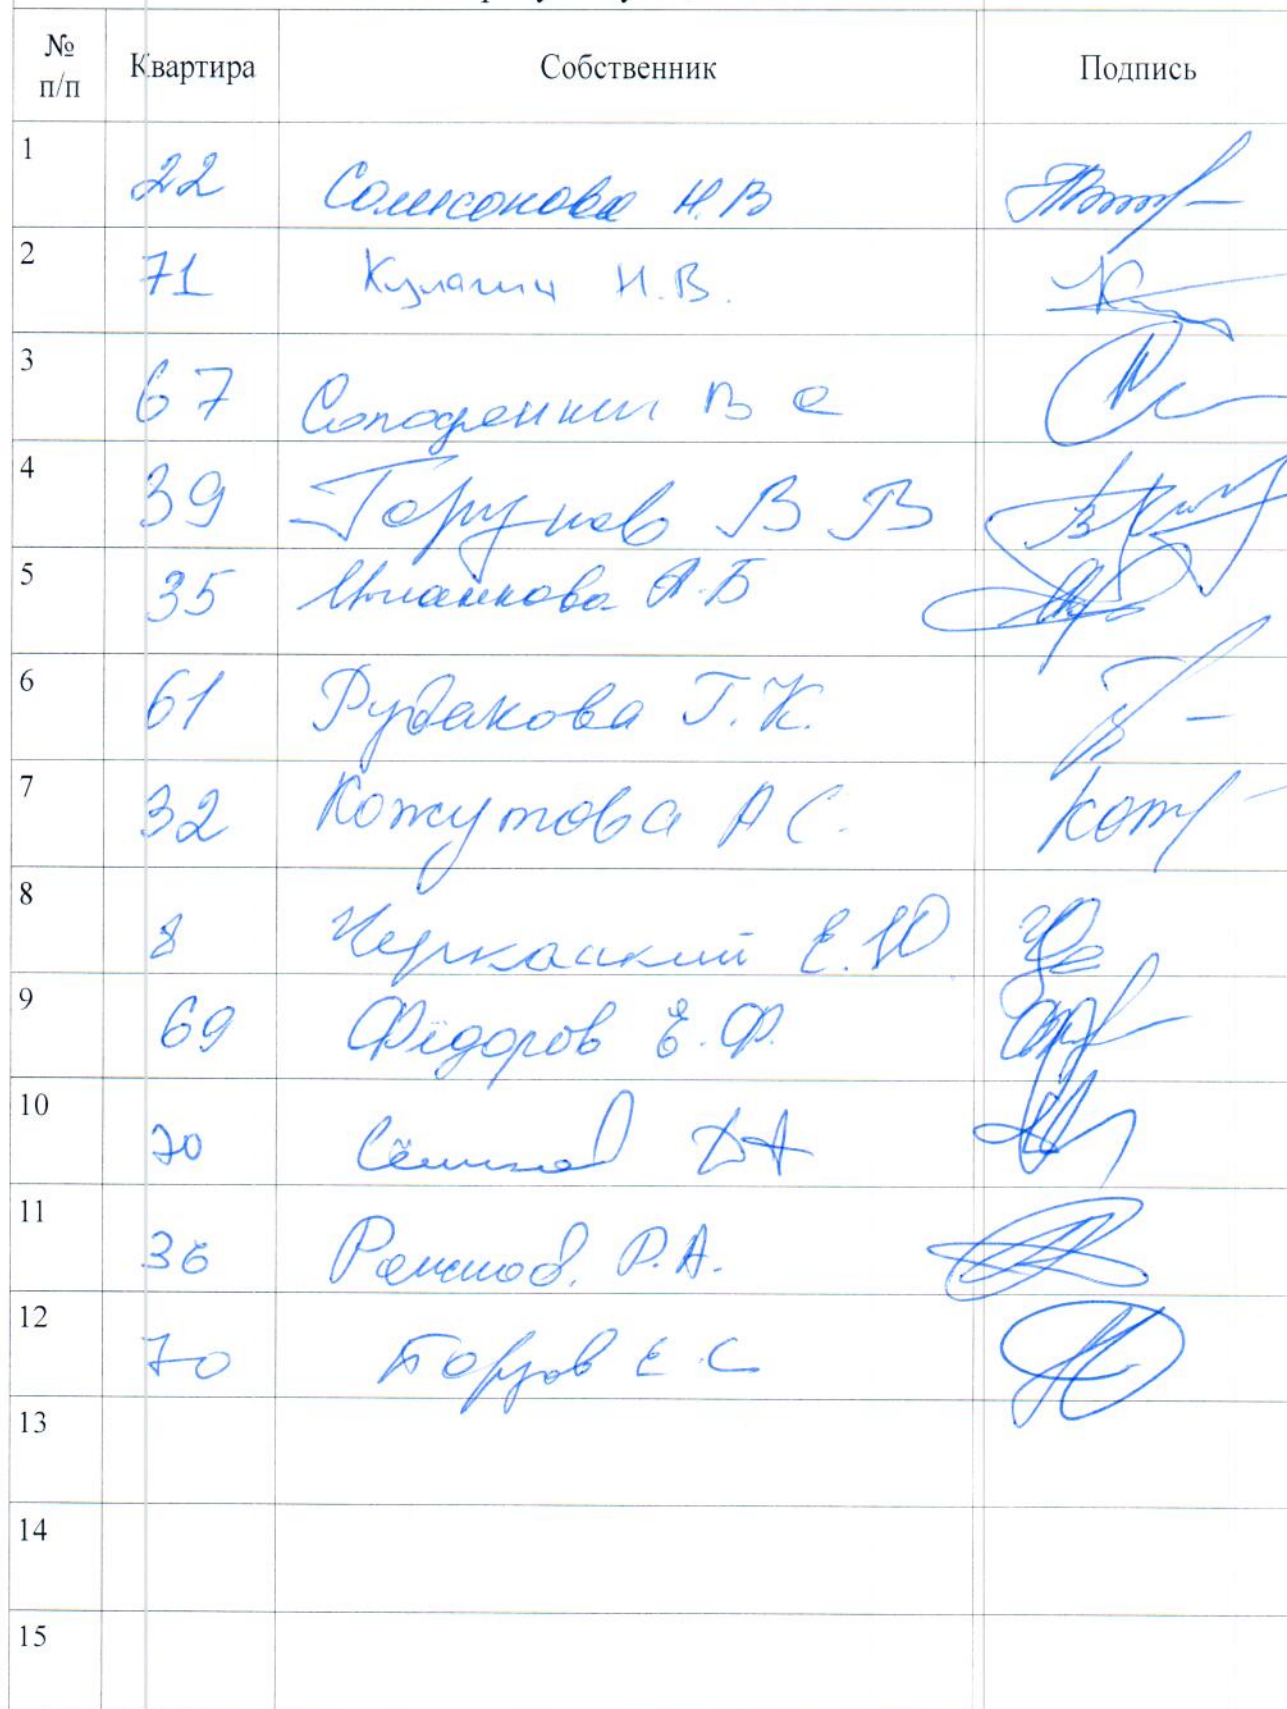 № п/п Квартира Собственник Подпись
1 22 Самсонова Н.В
2 71 Кулагин Н.В.
3 67 В С
4 39 Горунов В В
5 35 А.Б
6 61 Рудакова Г.К.
7 32 Кожутова А С.
8 8 Черкасский Е.Ю
9 69 Фёдоров Е.Ф.
10 70 Д А
11 36 Р.А.
12 70 Борзов Е.С
13
14
15